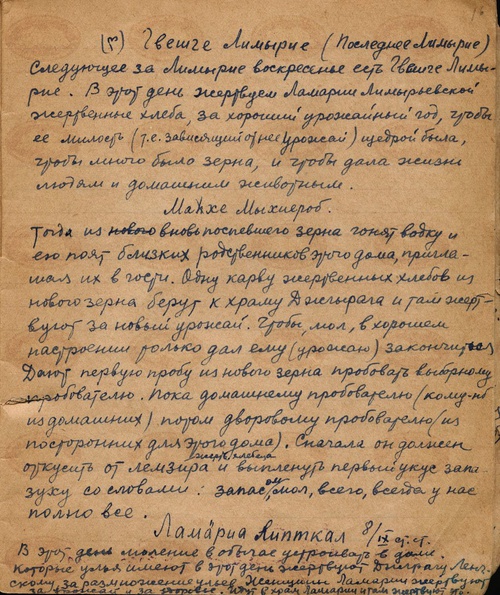 (ლ) Гвешге Лимырие (Последнее Лимырие)
Следующее за Лимырие воскресенье есть Гвешге Лимы-
рие. В этот день жертвуем Ламарии Лимырьевской
жертвенные хлеба, за хороший урожайный год, чтобы
ее милость (т.е. зависящий от нее урожай) щедрой была,
чтобы много было зерна, и чтобы дала жизни
людям и домашним животным.
Махе Мыхиероб.
Тогда из нового вновь поспевшего зерна гонят водку и
ею поят близких родственников этого дома, пригла-
шая их в гости. Одну карву жертвенных хлебов из
нового зерна берут к храму Джгырага и там жерт-
вуют за новый урожай. Чтобы, мол, в хорошем
настроении только дал ему (урожаю) закончиться
Дают первую пробу из нового зерна пробовать выборному
пробователю. Пока домашнему пробователю (кому-ниб
из домашних) потом дворовому пробователю (из
посторонних для этого дома). Сначала он должен
жертв. хлебца
откусить от лемзира и выплюнуть первый укус запа-
зуху со словами: запасом, мол, всего, всегда у нас
полно все.
Ламариа Липткал 8/IX ст. ст.
В этот день моление в обычае устраивать в доме.
Которые улья имеют в этот день жертвуют Джграгу Ленг-
скому, за размножение ульев. Женщины Ламарии жертвуют
за урожай и за здоровье. Идут в храм Ламарии и там жертвуют